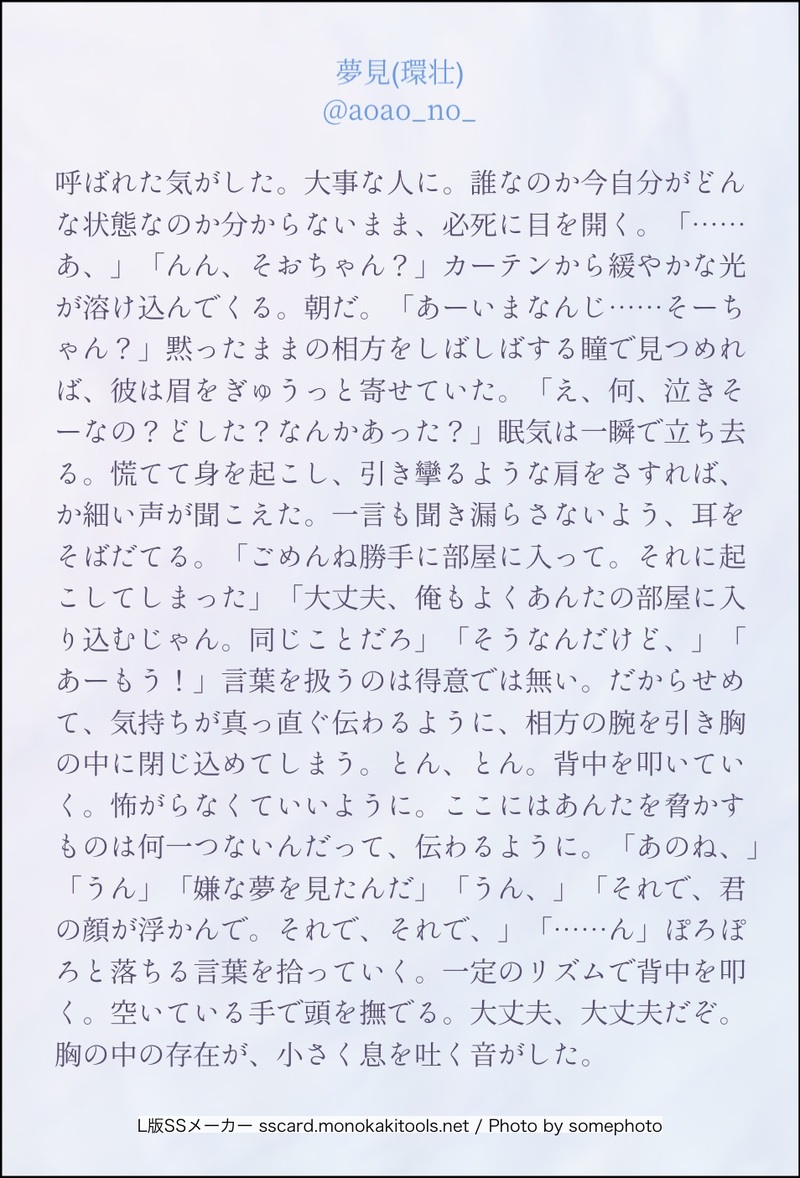 夢見(環壮)
@aoao_no_
呼ばれた気がした。大事な人に。誰なのか今自分がどん
な状態なのか分からないまま、必死に目を開く。「……
あ、」「んん、そおちゃん？」カーテンから緩やかな光
が溶け込んでくる。朝だ。「あーいまなんじ……そーち
ゃん？」黙ったままの相方をしばしばする瞳で見つめれ
ば、彼は眉をぎゅうっと寄せていた。「え、何、泣きそ
ーなの？どした？なんかあった？」眠気は一瞬で立ち去
る。慌てて身を起こし、引き攣るような肩をさすれば、
か細い声が聞こえた。一言も聞き漏らさないよう、耳を
そばだてる。「ごめんね勝手に部屋に入って。それに起
こしてしまった」「大丈夫、俺もよくあんたの部屋に入
り込むじゃん。同じことだろ」「そうなんだけど、」「
あーもう！」言葉を扱うのは得意では無い。だからせめ
て、気持ちが真っ直ぐ伝わるように、相方の腕を引き胸
の中に閉じ込めてしまう。とん、とん。背中を叩いてい
く。怖がらなくていいように。ここにはあんたを脅かす
ものは何一つないんだって、伝わるように。「あのね、」
「うん」「嫌な夢を見たんだ」「うん、」「それで、君
の顔が浮かんで。それで、それで、」「……ん」ぽろぽ
ろと落ちる言葉を拾っていく。一定のリズムで背中を叩
く。空いている手で頭を撫でる。大丈夫、大丈夫だぞ。
胸の中の存在が、小さく息を吐く音がした。
L版SSメーカー sscard.monokakitools.net / Photo by somephoto